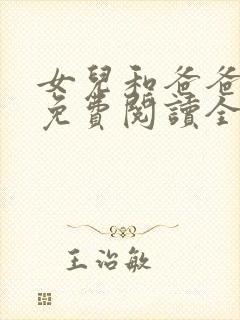 女兒和爸爸
免費閱讀全
王治敏